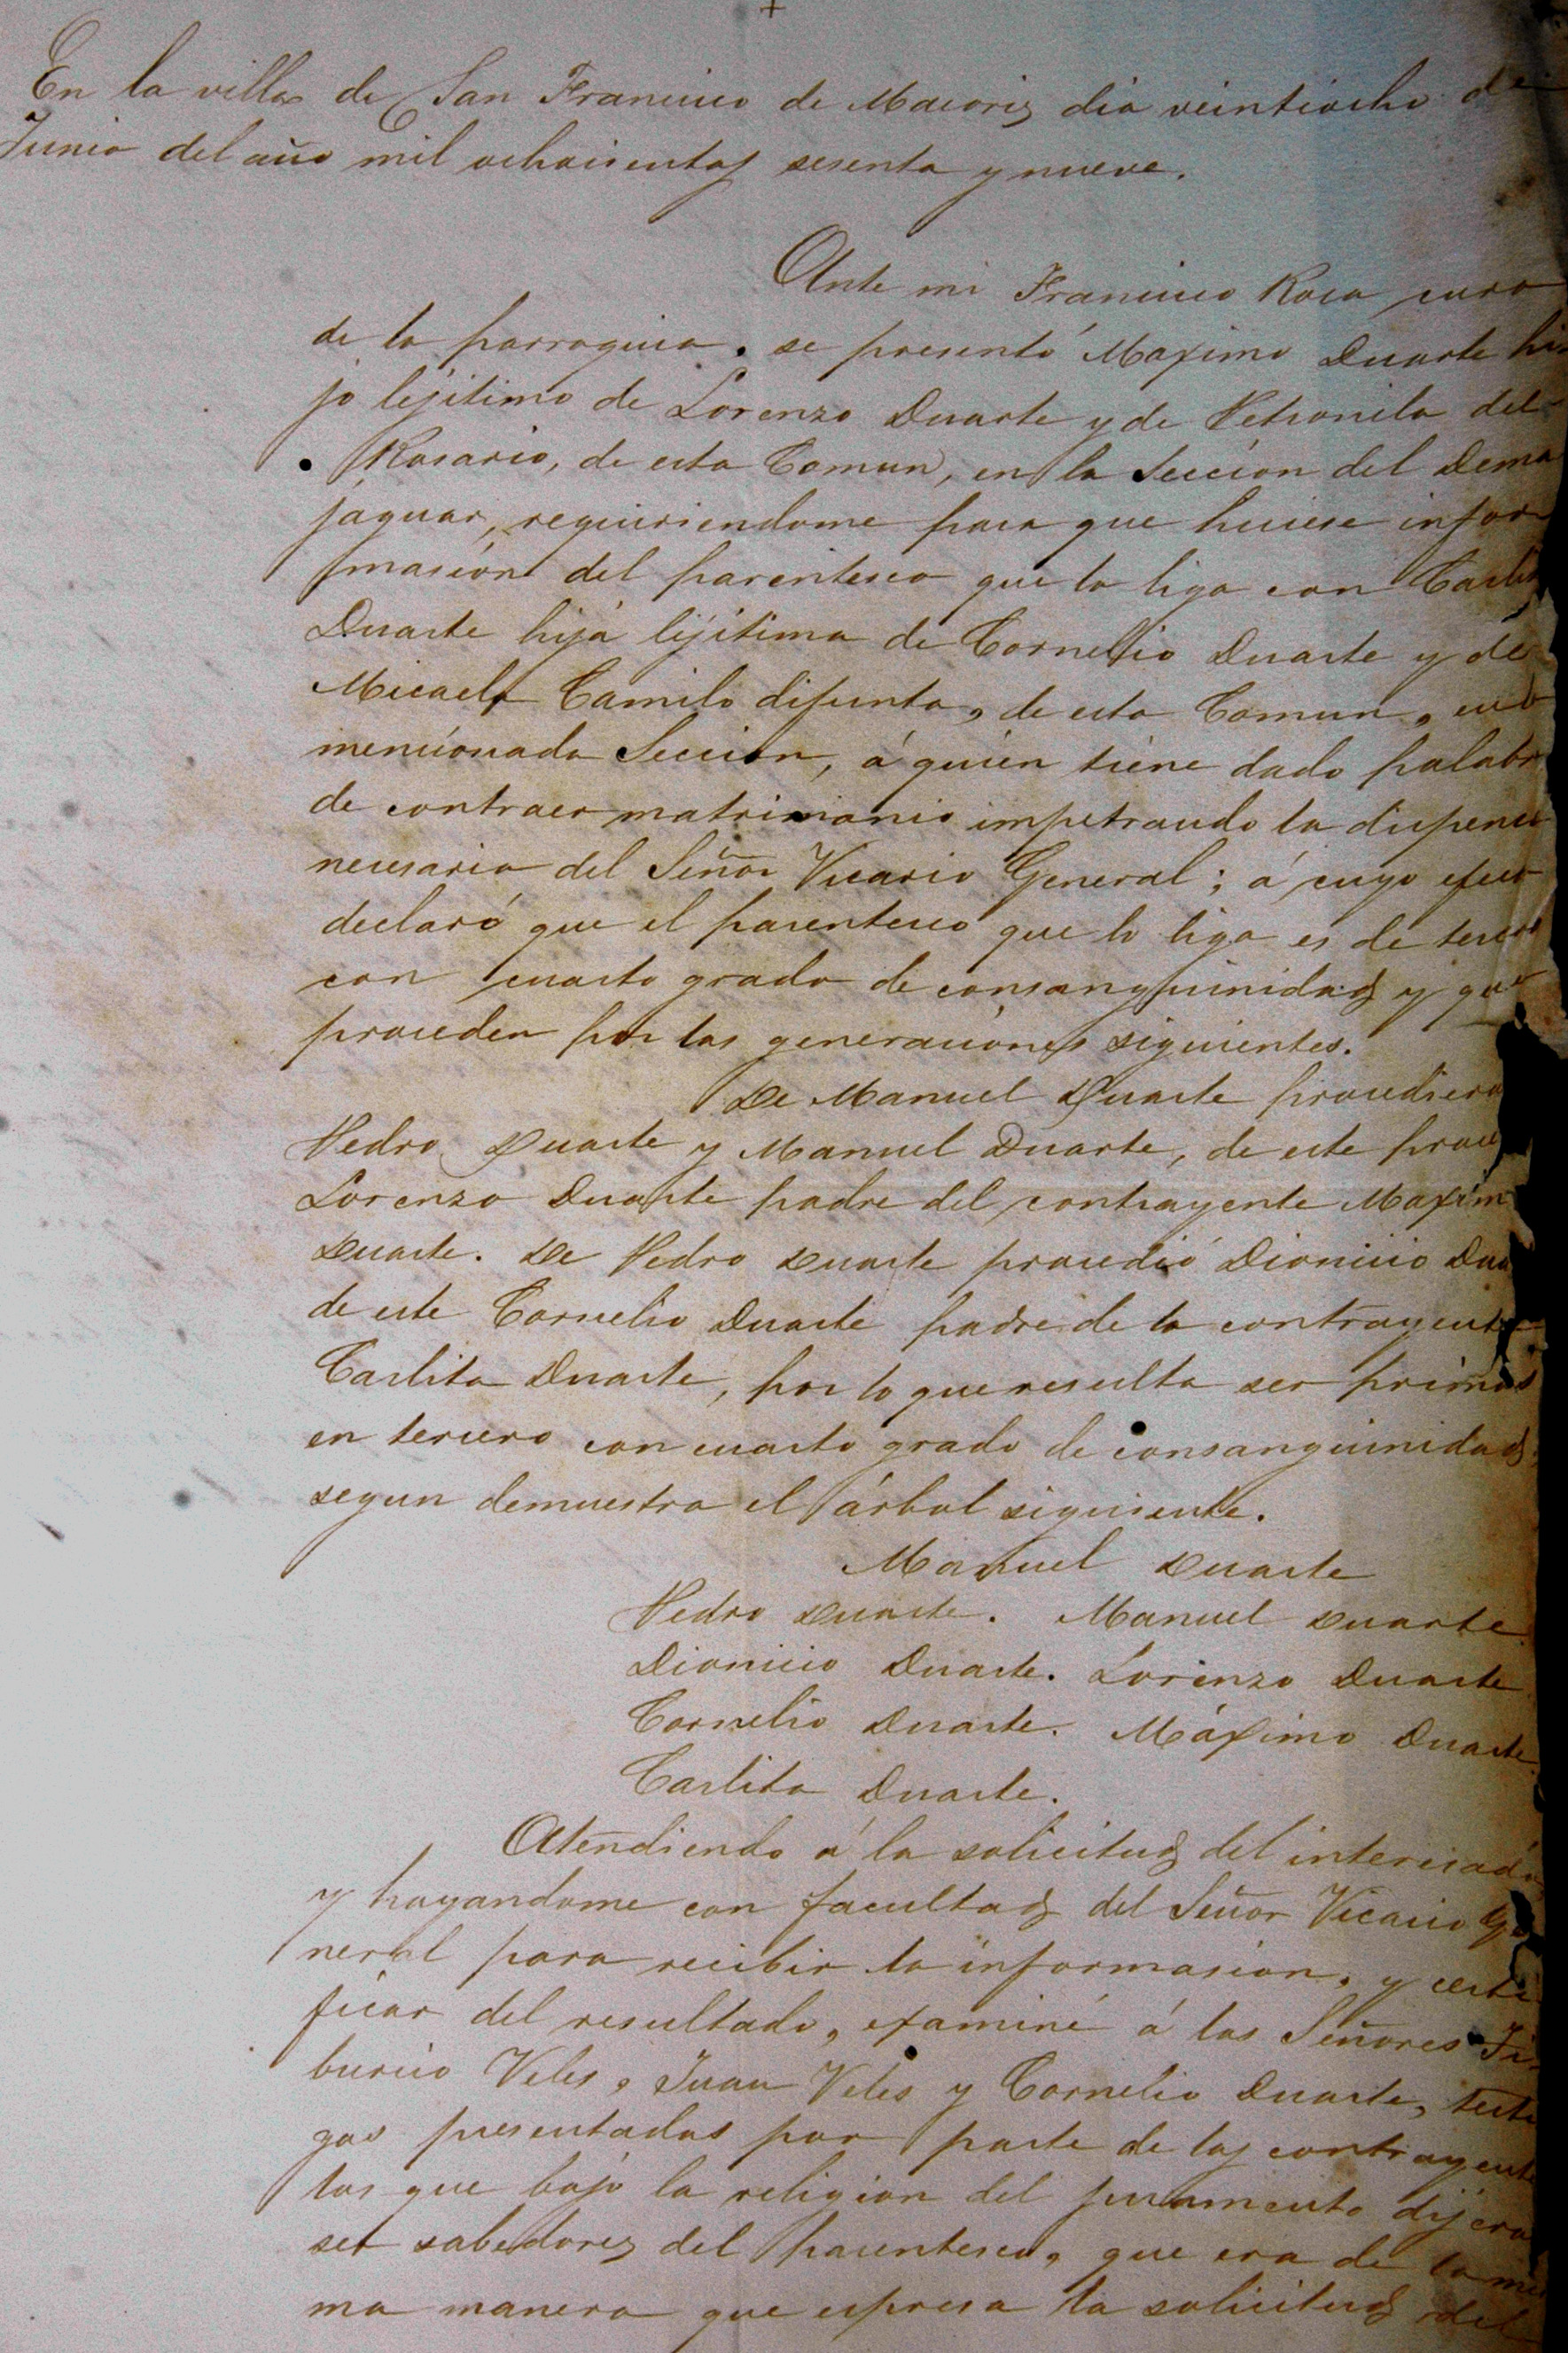 En la villa de San Francisco de Macoris dia veintiocho de
Junio del año mil ochocientos sesenta y nueve.
Ante mi Francisco Roca cura
de la parroquia. se presentó Maximo Duarte hi
jo lejitimo de Lorenzo Duarte y de Petronila del
Rosario, de esta Comun, en la Seccion del Dema
jaguar, requiriendome para que huiese infor
masión del parentesco que lo liga con Carlit
Duarte hija lijitima de Cornelio Duarte y de
Micaela Camilo difunta, de esta Comun,
mencionada Seccion, á quien tiene dado palabr
de contraer matrimonio impetrando la dispensa
necesaria del Señor Vicario General; á cuyo efec
declaró que el parentesco que lo liga es de tercer
con cuarto grado de consanguinidad y que
proceden por las generaciónes siguientes.
De Manuel Duarte procediero
Pedro Duarte y Manuel Duarte, de este proce
Lorenzo Duarte padre del contrayente Maxim
Duarte. De Pedro Duarte procedió Dionicio Dua
de este Cornelio Duarte padre de la contrayente
Carlita Duarte, por lo que resulta ser primos
en tercero con cuarto grado de consanguinidad
segun demuestra el árbol siguiente.
Manuel Duarte
Pedro Duarte. Manuel Duarte
Dionicio Duarte. Lorenzo Duarte
Cornelio Duarte. Máximo Duarte
Carlita Duarte.
Atendiendo á la solicitud del interesado
y hayandome con facultad del Señor Vicario Ge
neral para recibir la informasion, y certi
ficar del resultado, examiné á los Señores Ti
burcio Veles, Juan Veles y Cornelio Duarte, testi
gos presentados por parte de los contrayente
los que bajo la religion del juramento dijero
ser sabedores del parentesco, que era de la mis
ma manera que espresa la solicitud del